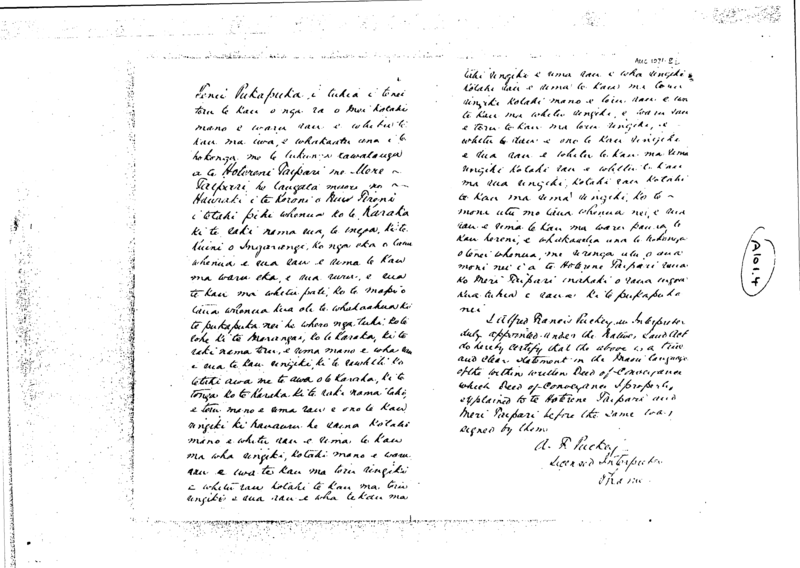 Tenei Pukapuka i tuhia i tenei
toru te kau o nga ra o Mei Kotahi
mano e waru rau e whitu te
kau ma iwa, e whakaatu ana i te
hokonga, me te tukunga rawatanga
a te Hotereni Taipari me Mere
Taipari he tangata maori no
Hauraki i te Koroni o Niu Tireni
i tetahi pihi whenua ko te Karaka
ki te raki nama rua, te ingoa, ki te
Kuini o Ingarangi. Ko nga eka o taua
whenua e rua rau e rima te kau
ma waru eka, e rua ruri, e rua
te kau ma whitu pati, ko te mapi o
taua whenua kua oti te whakaahua ki
te pukapuka nei he whero nga tuhi, ko te
rohe ki te Marangai, ko te Karaka, ki te
raki nama toru, e rima mano e wha rau
e rua te kau ringiki, ki te
tetahi awa me te awa o te Karaka, ki te
tonga ko te Karaka ki te raki nama tahi,
e toru mano e rima rau e ono te kau
ringiki ki hauauru he raina kotahi
mano e whitu rau e rima te kau
ma wha ringiki, kotahi mano e waru
rau e iwa te kau ma toru ringiki
e whitu rau kotahi te kau ma toru
ringiki e rua rau e wha te kau ma
AUC 1071
tahi ringiki e rima rau e wha ringiki
kotahi rau e rima te kau ma toru
ringiki kotahi mano e toru rau e
te kau ma whitu ringiki, e waru rau
e toru te kau ma toru ringiki, e
whitu te rau e ono te kau ringiki
e rua rau e whitu te kau ma rima
ringiki kotahi rau e whitu te kau
ma rua ringiki, kotahi rau kotahi
te kau ma rima ringiki, ko te
moni utu mo taua whenua nei, e rua
rau e rima te kau ma waru pauna te
kau hereni, e whakaaetia ana te hokonga
o tenei whenua, me te utu o aua
moni nei i a te Hotereni Taipari raua
ko Meri Taipari o raua ingoa
kua tuhia e raua ki te pukapuka
nei
I Alfred Francis Puckey an Interpreter
duly appointed under the Native Land Act
do hereby certify that the above is a true
and clear statement in the Maori language
of the within written Deed of Conveyance
which Deed of Conveyance I properly
explained to Te Hotereni Taipari and
Meri Taipari before the same was
signed by them
A. F. Puckey
Licensed Interpreter
Thames
A101.4